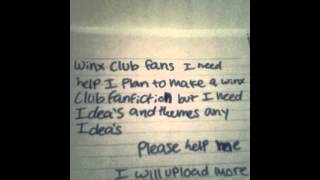 Winx Club fans I need
help I plan to make a winx
Club fanfiction but I need
Idea's and themes any
Idea's
Please help me
I will upload more